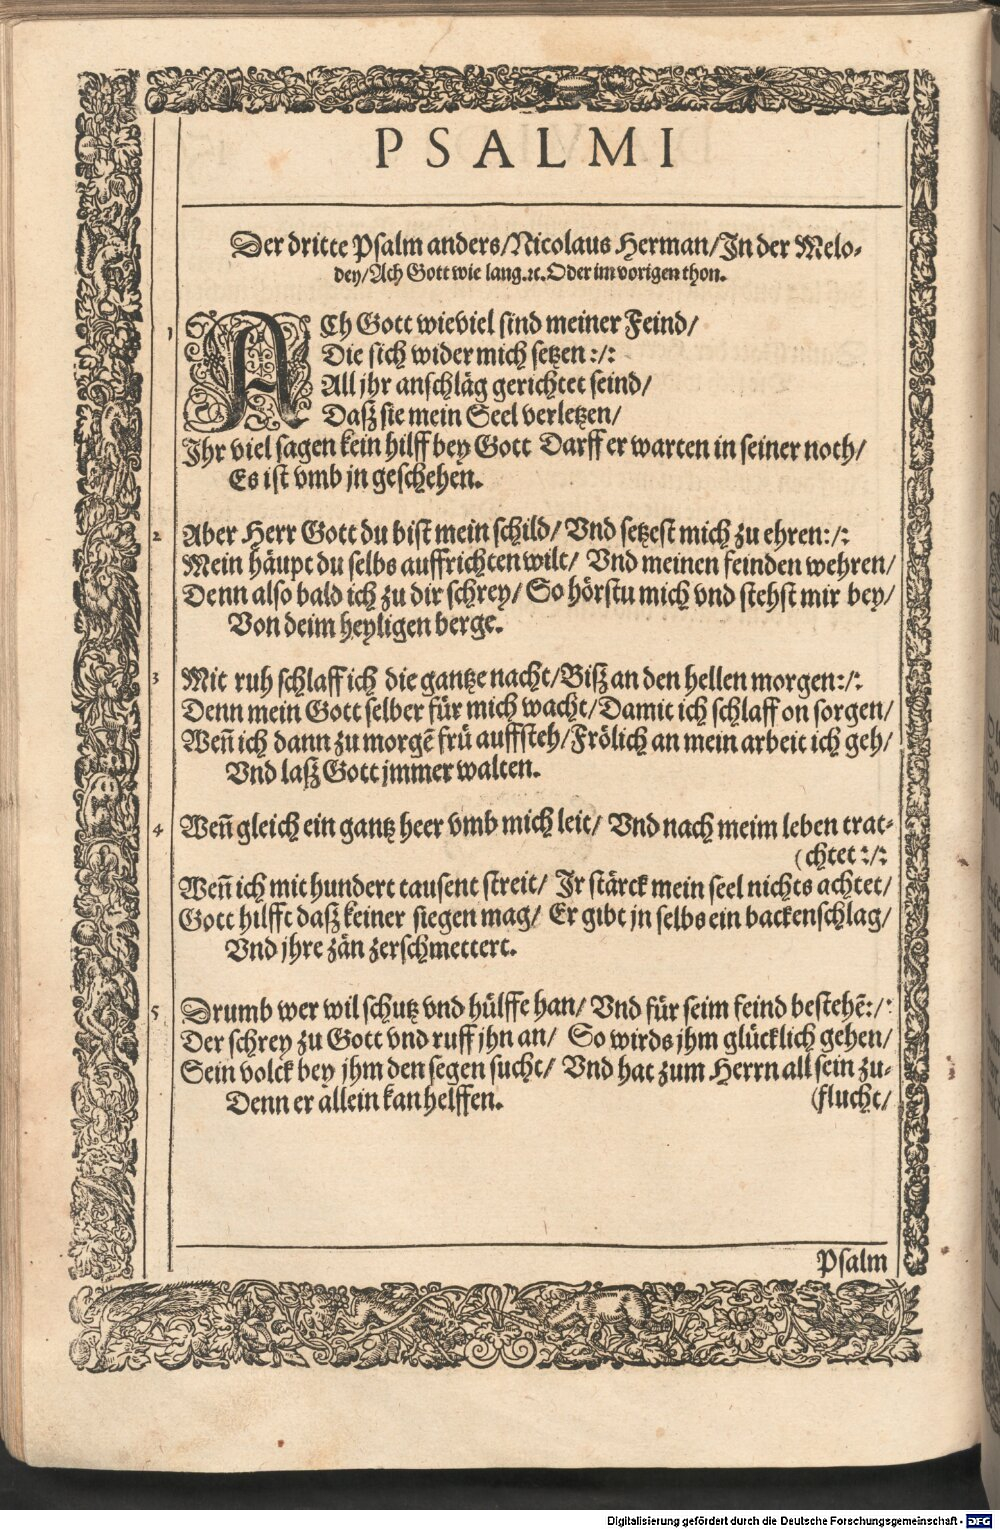 PSALMI
Der dritte Psalm anders/Nicolaus Herman/In der Melo-
dey/Ach Gott wie lang.ꝛc. Oder im vorigen thon.
1 ACh Gott wieviel sind meiner Feind/
Die sich wider mich setzen :/:
All jhr anschläg gerichtet seind/
Daß sie mein Seel verletzen/
Ihr viel sagen kein hilff bey Gott Darff er warten in seiner noth/
Es ist vmb jn geschehen.
2 Aber Herr Gott du bist mein schild/ Vnd setzest mich zu ehren:/:
Mein häupt du selbs auffrichten wilt/ Vnd meinen feinden wehren/
Denn also bald ich zu dir schrey/ So hörstu mich vnd stehst mir bey/
Von deim heyligen berge.
3 Mit ruh schlaff ich die gantze nacht/Biß an den hellen morgen:/:
Denn mein Gott selber für mich wacht/Damit ich schlaff on sorgen/
Weñ ich dann zu morgẽ frü auffsteh/Frölich an mein arbeit ich geh/
Vnd laß Gott jmmer walten.
4 Weñ gleich ein gantz heer vmb mich leit/ Vnd nach meim leben trat-
(chtet :/:
Weñ ich mit hundert tausent streit/ Ir stärck mein seel nichts achtet/
Gott hilfft daß keiner siegen mag/ Er gibt jn selbs ein backenschlag/
Vnd jhre zän zerschmettert.
5 Drumb wer wil schutz vnd hülffe han/ Vnd für seim feind bestehẽ:/:
Der schrey zu Gott vnd ruff jhn an/ So wirds jhm glücklich gehen/
Sein volck bey jhm den segen sucht/ Vnd hat zum Herrn all sein zu-
Denn er allein kan helffen. (flucht/
Psalm
Digitalisierung gefördert durch die Deutsche Forschungsgemeinschaft - DFG